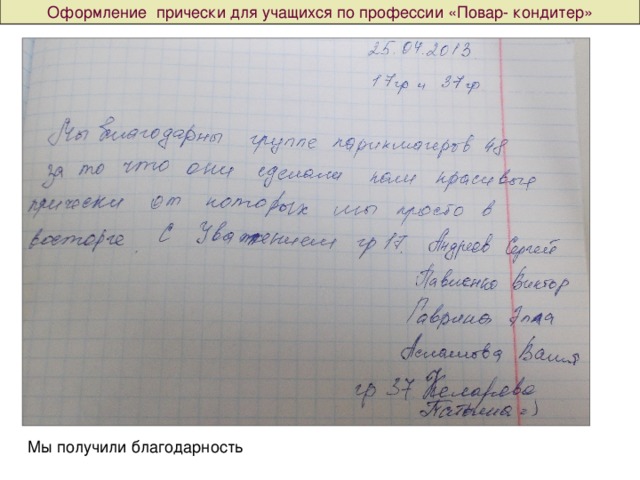 Оформление прически для учащихся по профессии «Повар- кондитер»
25.04.2013
17гр и 37гр
Мы благодарны группе парикмахеров 48
за то что они сделали нам красивые
прически от которых мы просто в
восторге. С Уважением гр 17. Андреев Сергей
Павленко Виктор
Гаврина Алла
Асламова Валя
гр 37 Комарова
Татьяна =)
Мы получили благодарность